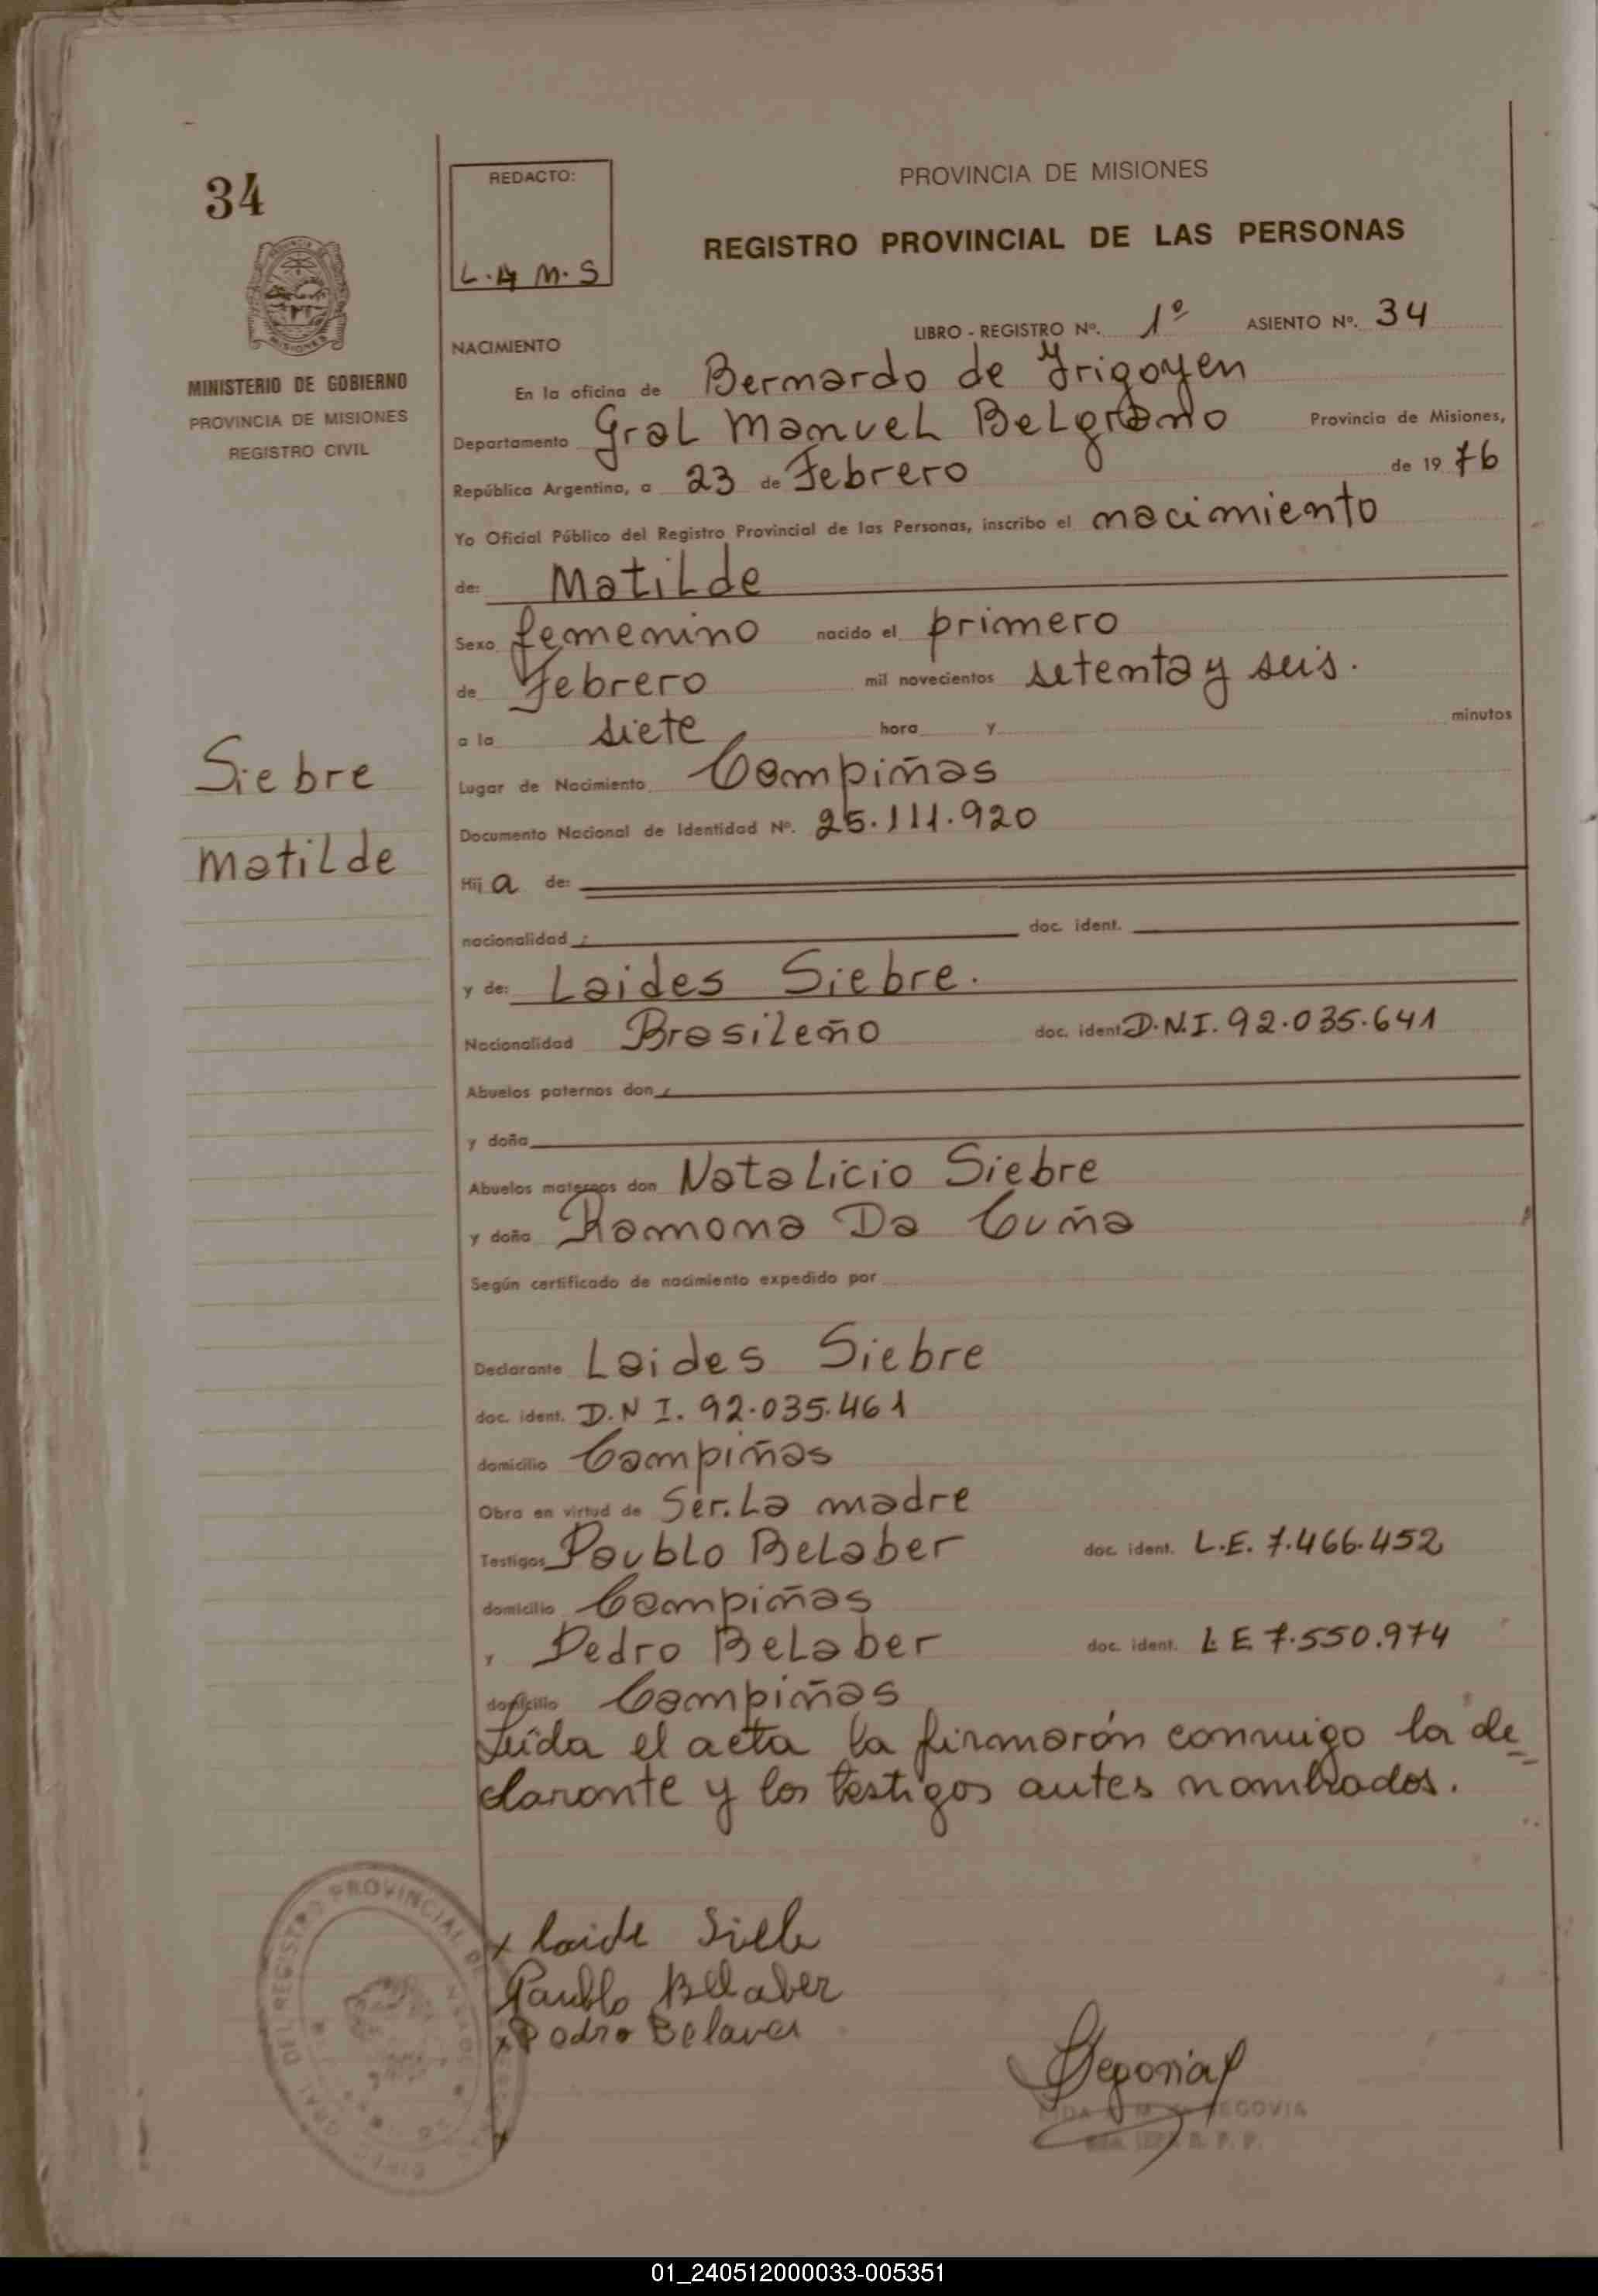 34
PROVINCIA DE MISIONES
MINISTERIO DE GOBIERNO
PROVINCIA DE MISIONES
REGISTRO CIVIL
Siebre
Matilde
REDACTO:
L.A M.S
PROVINCIA DE MISIONES
REGISTRO PROVINCIAL DE LAS PERSONAS
LIBRO - REGISTRO Nº. 1º ASIENTO Nº. 34
NACIMIENTO
En la oficina de Bernardo de Irigoyen
Departamento Gral Manuel Belgrano Provincia de Misiones,
República Argentina, a 23 de Febrero de 19 76
Yo Oficial Público del Registro Provincial de las Personas, inscribo el nacimiento
de: Matilde
Sexo femenino nacido el primero
de Febrero mil novecientos setenta y seis.
a la siete hora y minutos
Lugar de Nacimiento Campiñas
Documento Nacional de Identidad Nº. 25.111.920
Hij a de:
nacionalidad doc. ident.
y de: Laides Siebre.
Nacionalidad Brasileño doc. ident D.N.I. 92.035.641
Abuelos paternos don
y doña
Abuelos maternos don Natalicio Siebre
y doña Ramona Da Cuña
Según certificado de nacimiento expedido por
Declarante Laides Siebre
doc. ident. D.N I. 92.035.461
domicilio Campiñas
Obra en virtud de Ser.La madre
Testigos Paublo Belaber doc. ident. L.E. 7.466.452
domicilio Campiñas
y Pedro Belaber doc. ident. L E 7.550.974
domicilio Campiñas
Leida el acta la firmarón conmigo la de
clarante y los testigos antes nombrados.
x laide
Paublo Bellaber
x Pedro Belaver
SEGOVIA
DEL REGISTRO PROVINCIAL DE
01_240512000033-005351